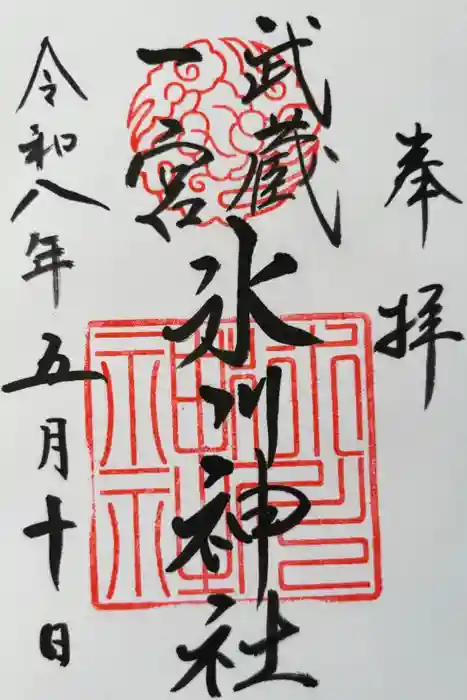 奉拝
武蔵
一宮
氷川神社
令和八年五月十日
氷川神社